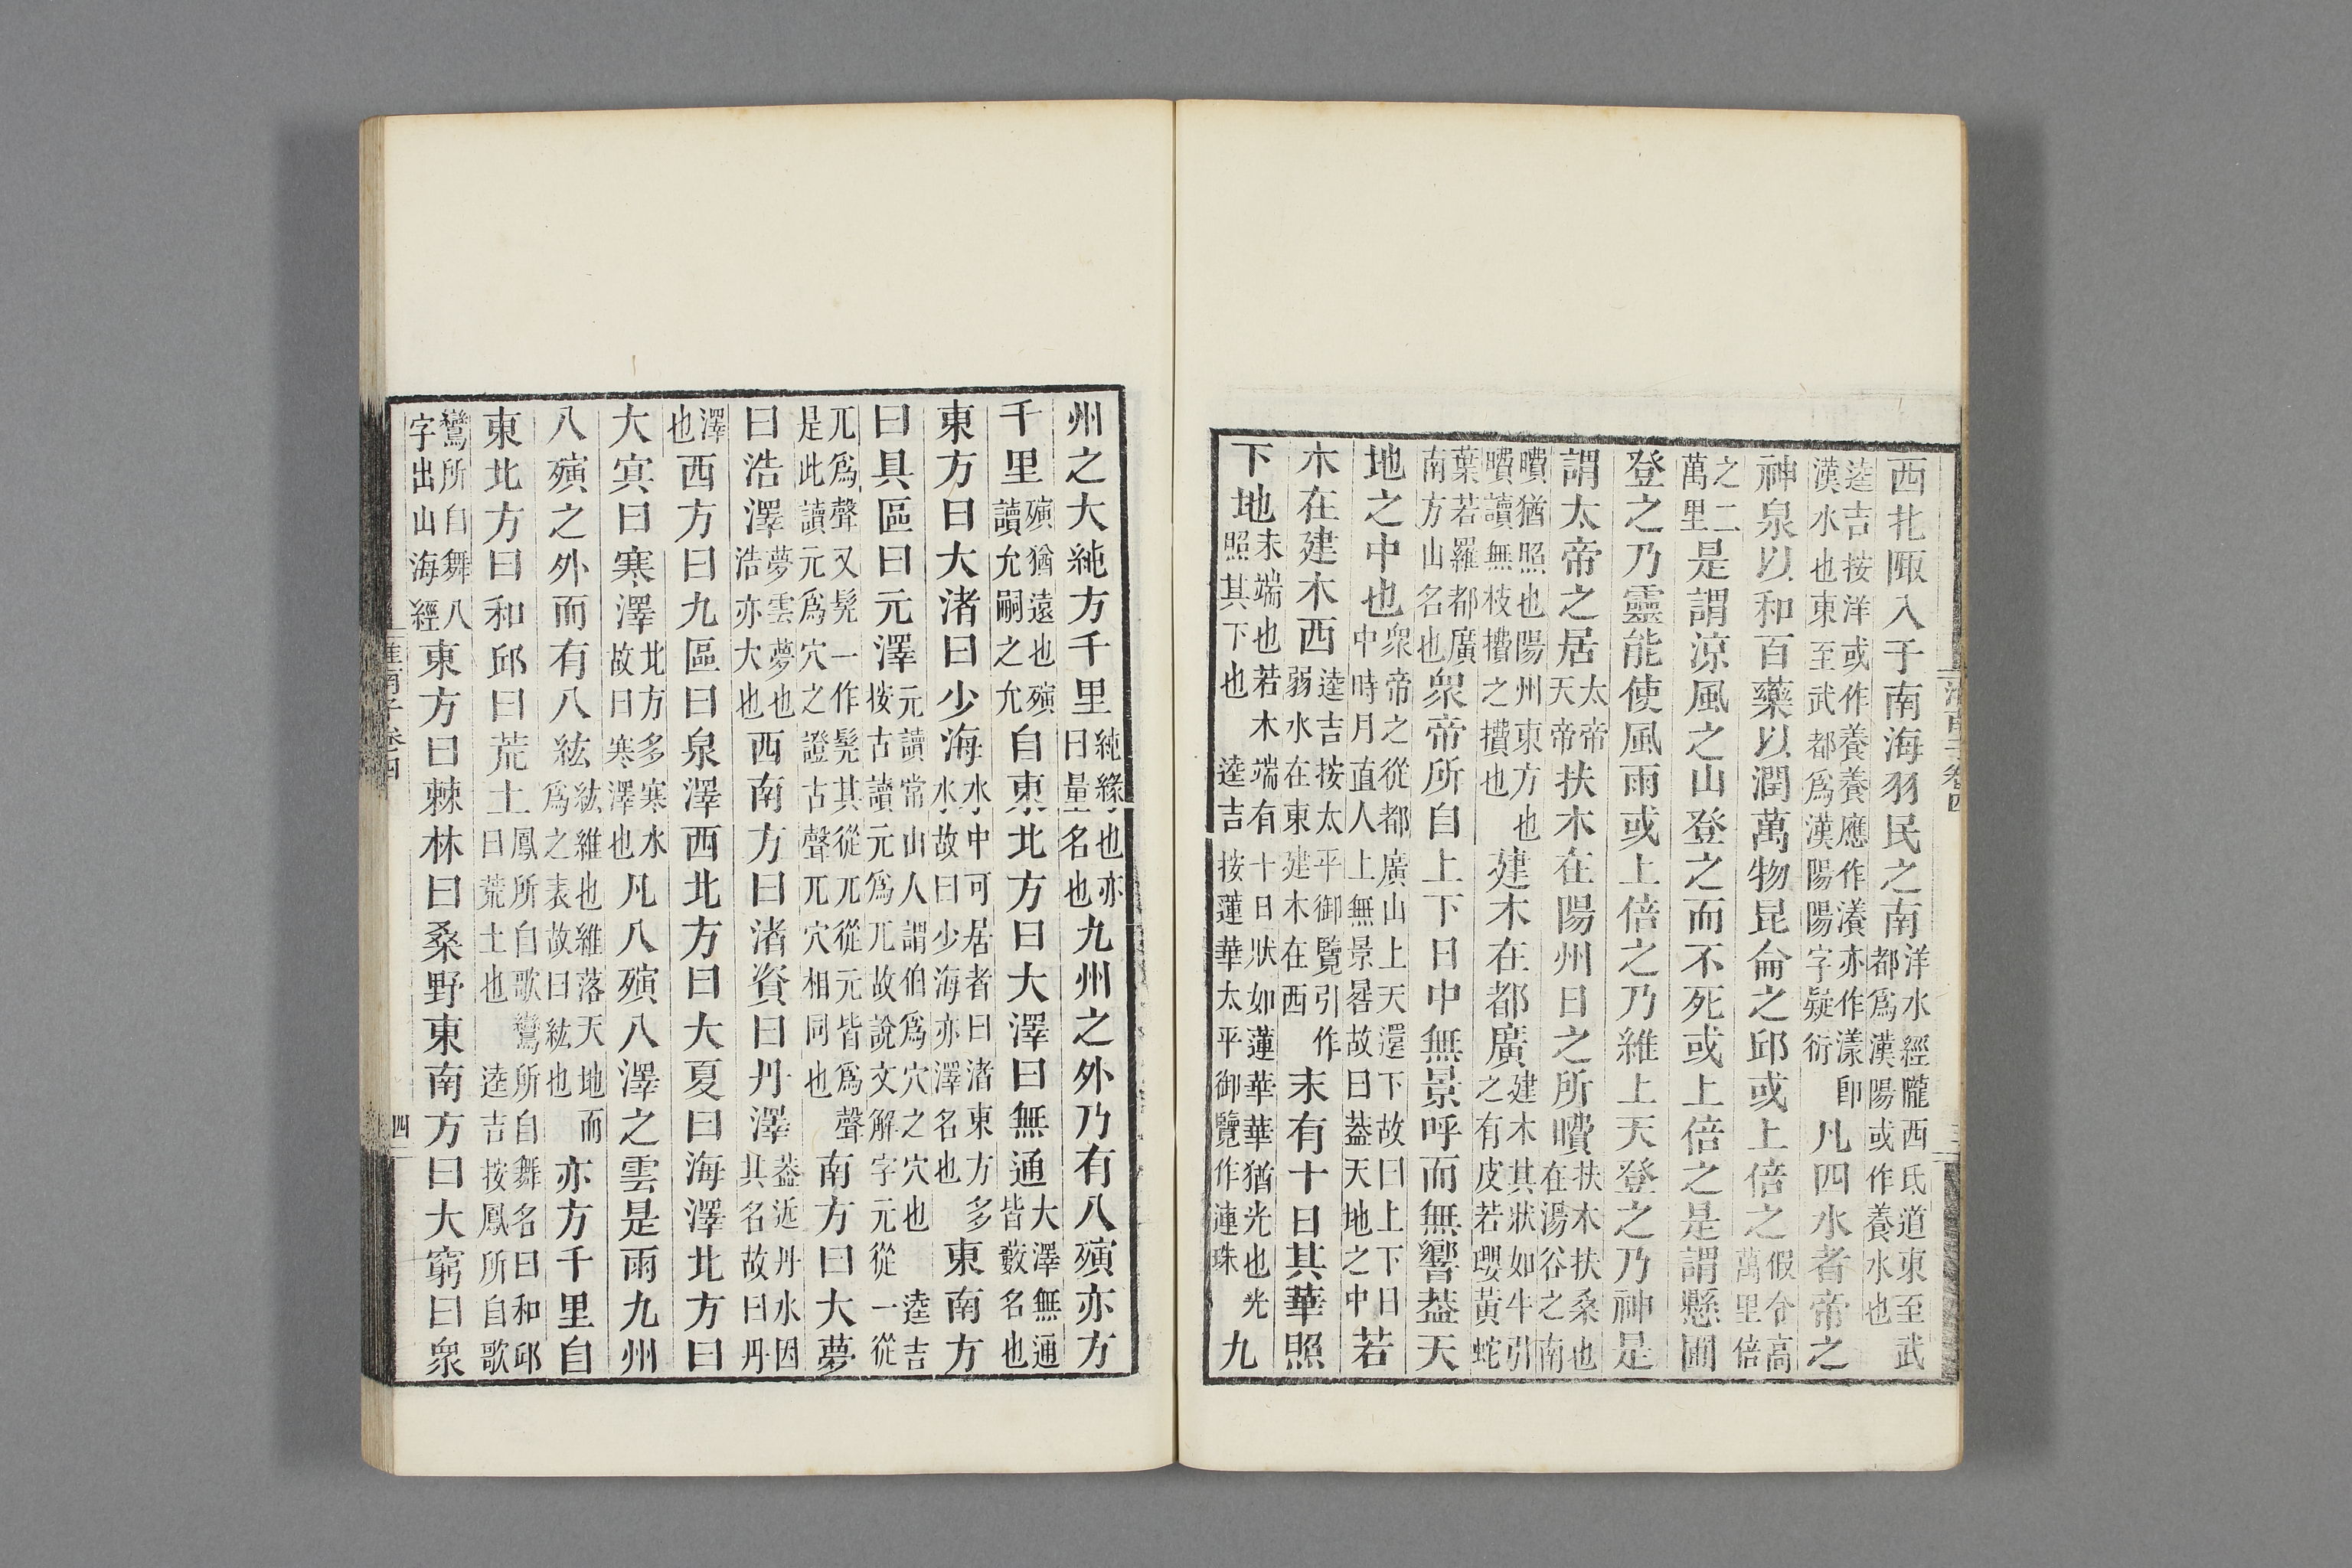 西北陬入于南海羽民之南洋水經隴西氐道東至武都爲漢陽或作養水也
逵吉按洋或作養養應作瀁亦作漾卽漢水也東至武都爲漢陽陽字疑衍凡四水者帝之
神泉以和百藥以潤萬物昆侖之邱或上倍之假令高萬里倍
之二萬里是謂涼風之山登之而不死或上倍之是謂懸圃
登之乃靈能使風雨或上倍之乃維上天登之乃神是
謂太帝之居太帝天帝扶木在陽州日之所曊扶木扶桑也在湯谷之南
曊猶照也陽州東方也曊讀無枝攢之攢也建木在都廣建木其狀如牛引之有皮若瓔黃蛇
葉若羅都廣南方山名也眾帝所自上下日中無景呼而無響葢天
地之中也眾帝之從都廣山上天還下故曰上下日中時月直人上無景晷故曰葢天地之中若
木在建木西逵吉按太平御覽引作弱水在東建木在西末有十日其華照
下地末端也若木端有十日狀如蓮華華猶光也光照其下也逵吉按蓮華太平御覽作連珠九
淮南子卷四
三
州之大純方千里純緣也亦曰量名也九州之外乃有八殥亦方
千里殥猶遠也殥讀允嗣之允自東北方曰大澤曰無通大澤無通皆藪名也
東方曰大渚曰少海水中可居者曰渚東方多水故曰少海亦澤名也東南方
曰具區曰元澤元讀常山人謂伯爲穴之穴也按古讀元爲兀故說文解字元從一從逵吉
兀爲聲又髡一作髨其從兀從元皆爲聲是此讀元爲穴之證古聲兀穴相同也南方曰大夢
曰浩澤夢雲夢也浩亦大也西南方曰渚資曰丹澤葢近丹水因其名故曰丹
澤也西方曰九區曰泉澤西北方曰大夏曰海澤北方曰
大冥曰寒澤北方多寒水故曰寒澤也凡八殥八澤之雲是雨九州
八殥之外而有八紘紘維也維落天地而爲之表故曰紘也亦方千里自
東北方曰和邱曰荒土鳳所自歌鸞所自舞名曰和邱曰荒土也逵吉按鳳所自歌
鸞所自舞八字出山海經東方曰棘林曰桑野東南方曰大窮曰眾
淮南子卷四
四